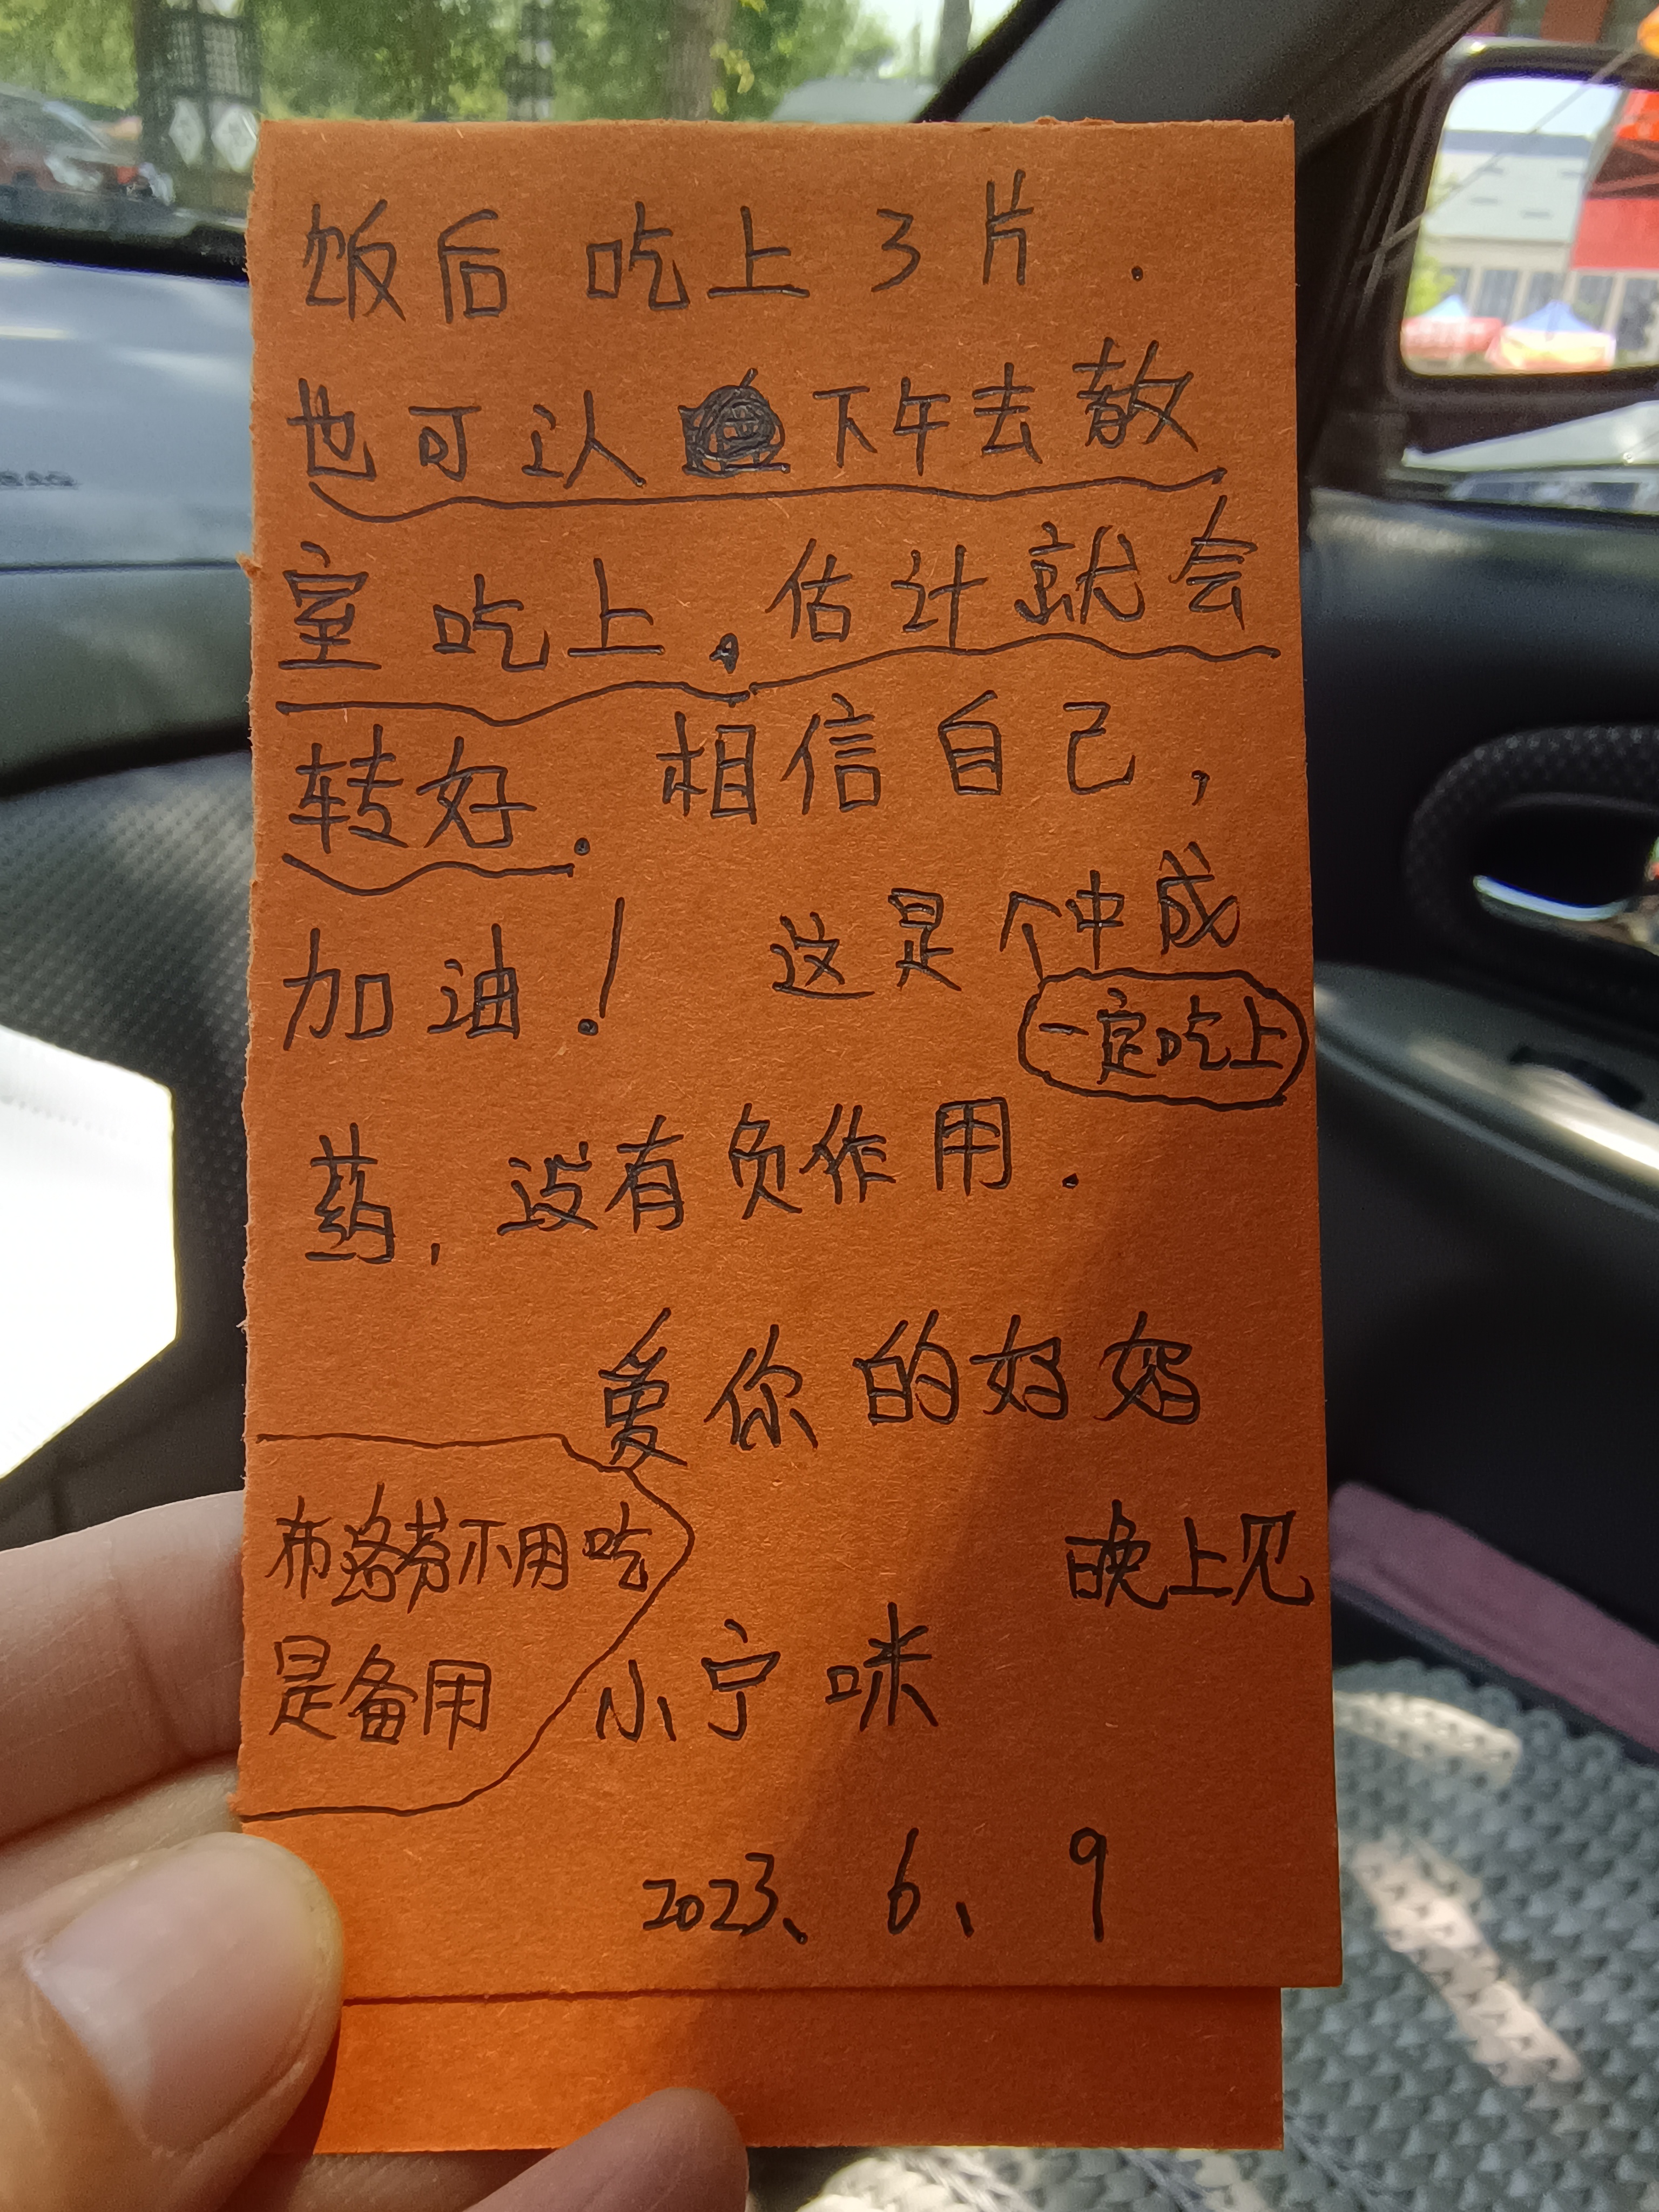 饭后吃上3片.
也可以下午去教
室吃上,估计就会
转好.相信自己,
加油!这是个中成
一定吃上
药,没有负作用.
爱你的妈妈
布洛芬不用吃
晚上见
是备用
小宁咪
2023、6、9